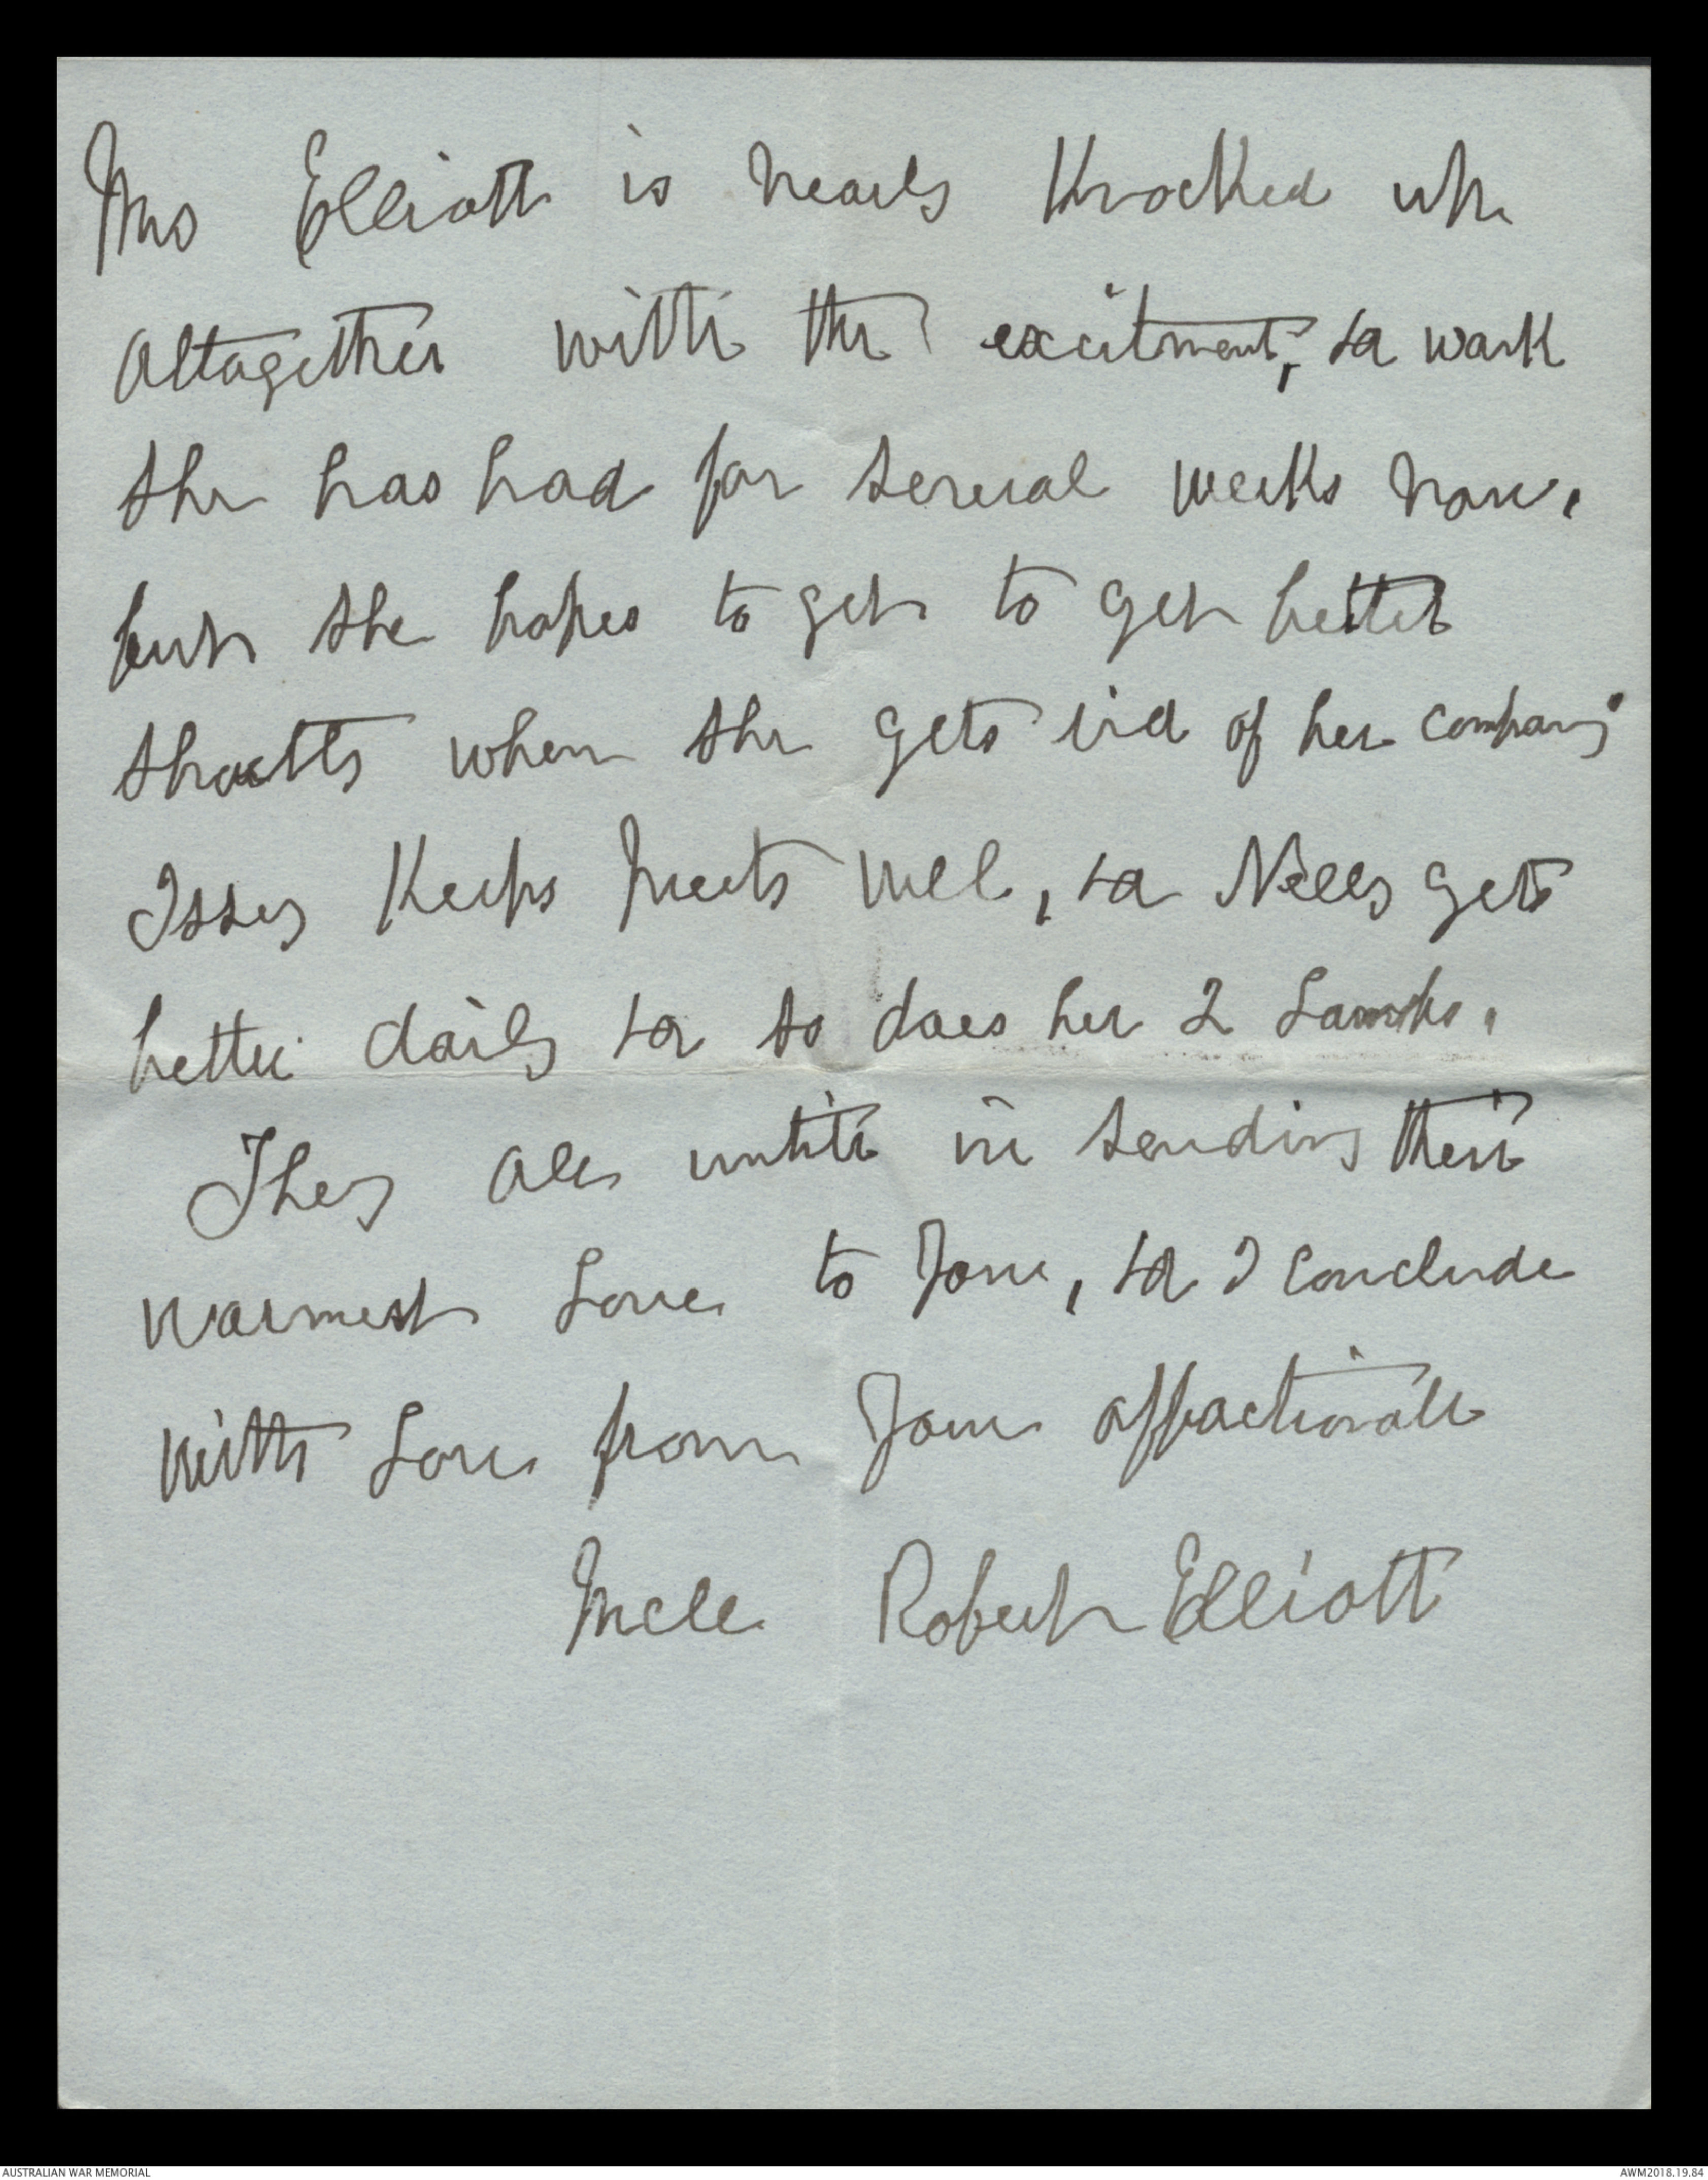 Mrs Elliott is nearly Knocked up
altogether with the excitment, & work
she has had for several weeks now,
but she hopes to get to get better
shortly when she gets rid of her company
Issy Keeps pretty well, & Nelly gets
better daily & so does her 2 Lambs.
They all unite in sending their
warmest Love to You, & I conclude
with Love from Your affectionate
Uncle Robert Elliott
AUSTRALIAN WAR MEMORIAL
AWM2018.19.84